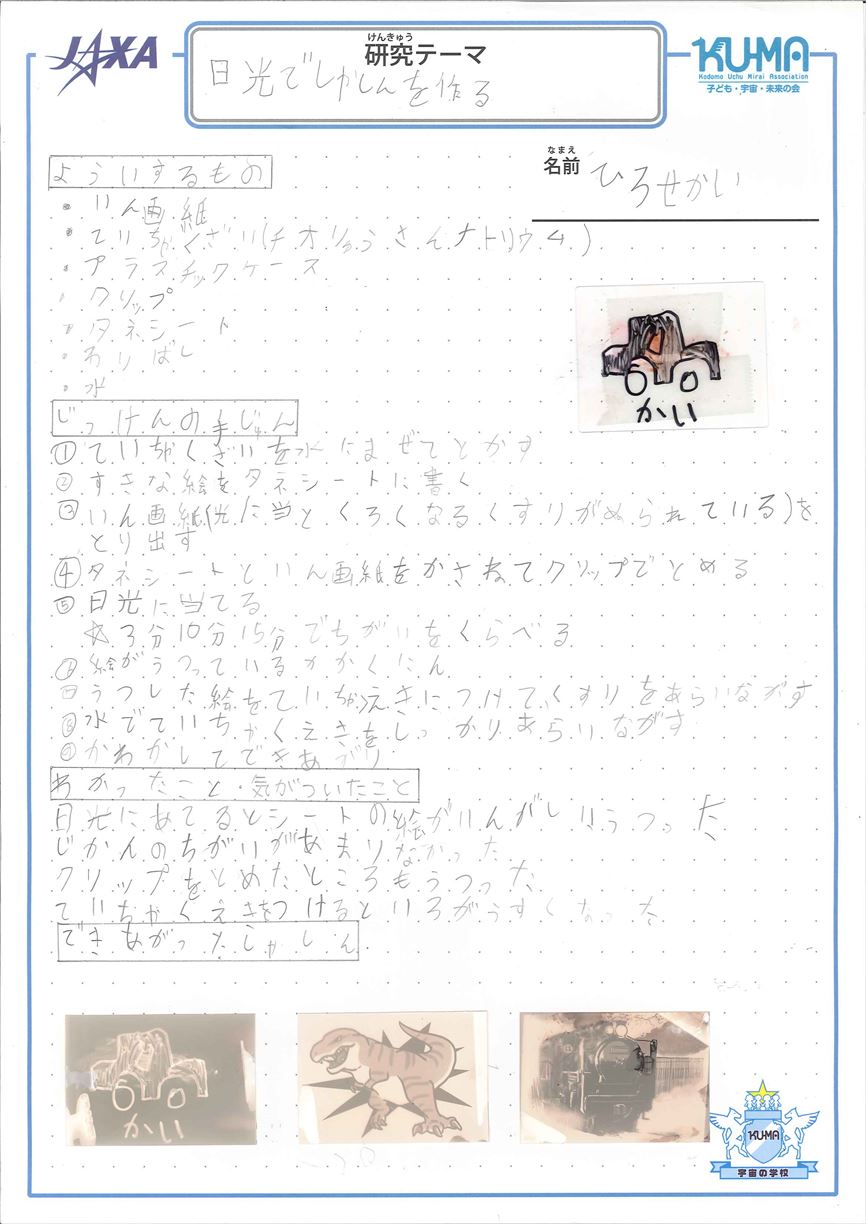 JAXA
けんきゅう
研究テーマ
日光でしゃしんを作る
KU-MA
Kodomo Uchu Mirai Association
子ども・宇宙・未来の会
なまえ
名前 ひろせかい
よういするもの
・いん画紙
・ていちゃくざい(チオりゅうさんナトリウム)
・プラスチックケース
・クリップ
・タネシート
・わりばし
・水
かい
じっけんの手じゅん
①ていちゃくざいを水にまぜてとかす
②すきな絵をタネシートに書く
③いん画紙(光に当とくろくなるくすりがぬられている)を
とり出す
④タネシートといん画紙をかさねてクリップでとめる
⑤日光に当てる
☆3分10分15分でちがいをくらべる
絵がうつっているかかくにん
うつした絵をていちゃくえきにつけてくすりをあらいながす
⑧水でていちゃくえきをしっかりあらいながす
⑨かわかしてできあがり
わかったこと・気がついたこと
日光にあてるとシートの絵がいんがしにうつった
じかんのちがいがあまりなかった
クリップをとめたところもうつった
ていちゃくえきをつけるといろがうすくなった
できあがったしゃしん
かい
KU-MA
宇宙の学校